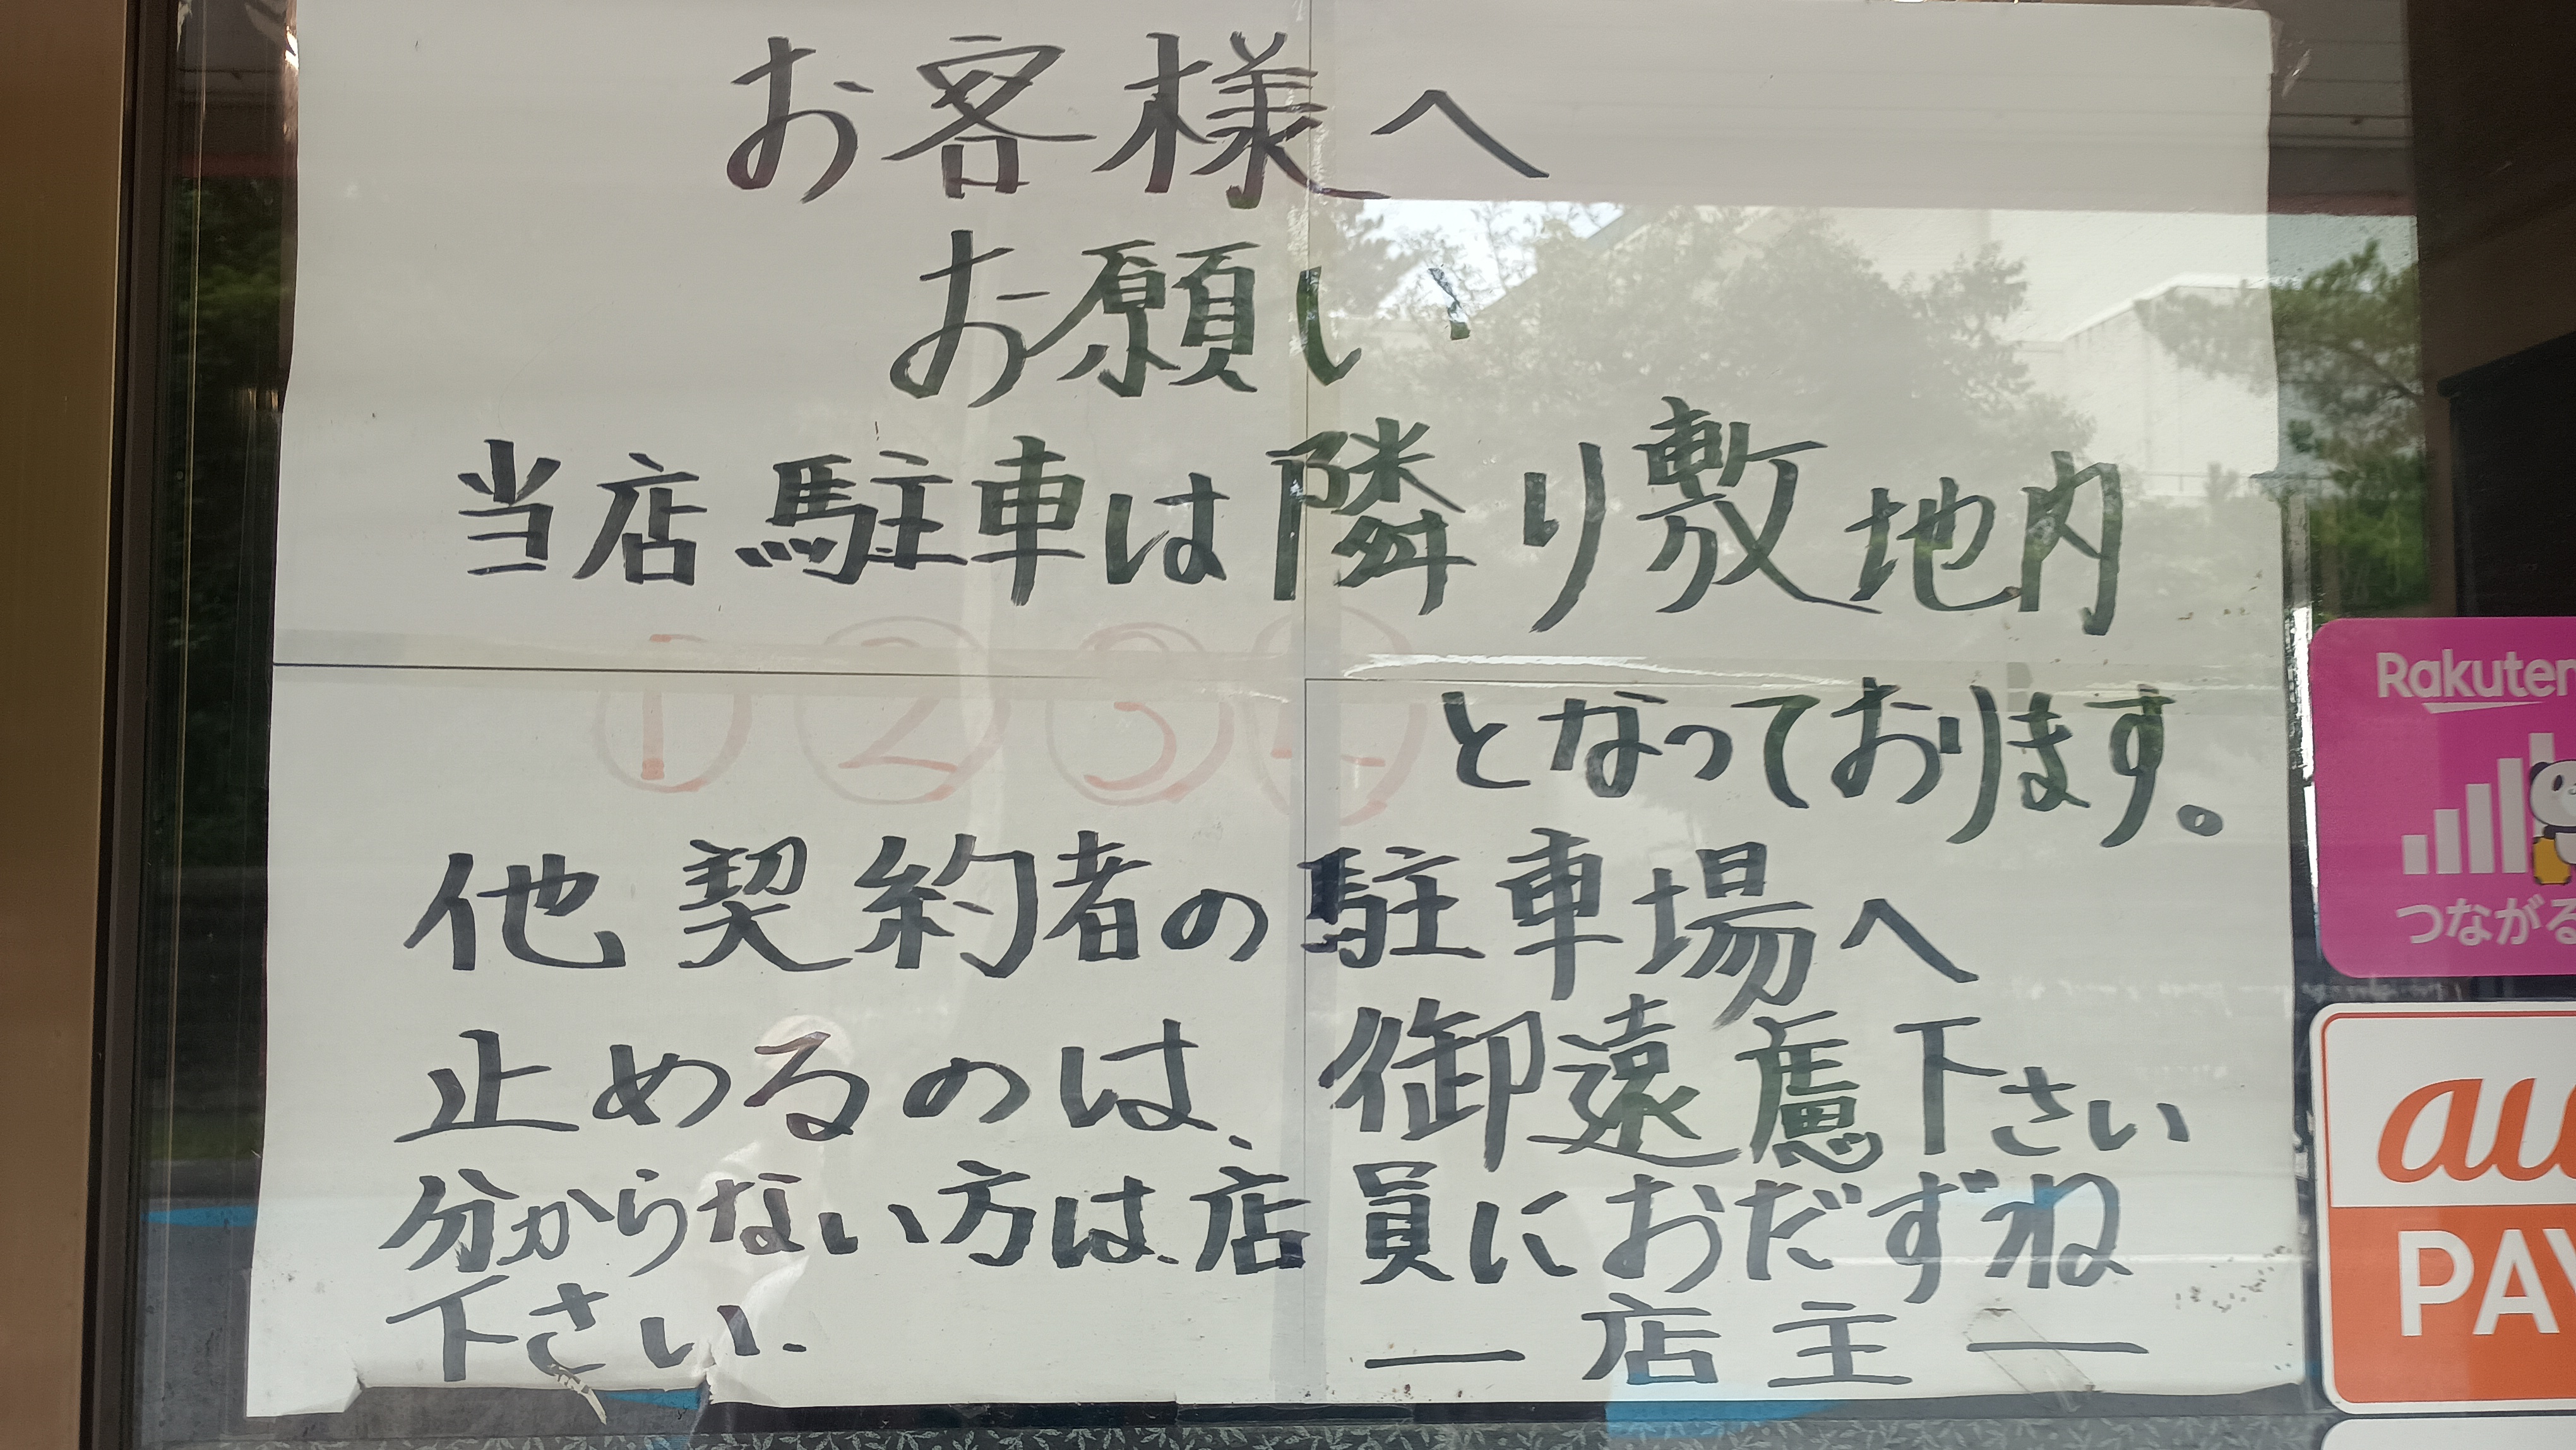 お客様へ
お願い
当店駐車は隣り敷地内
①②③④となっております。
他契約者の駐車場へ
止めるのは、御遠慮下さい
分からない方は、店員におだずね
下さい.
ー店主ー
Rakuten
つながる
au
PAY